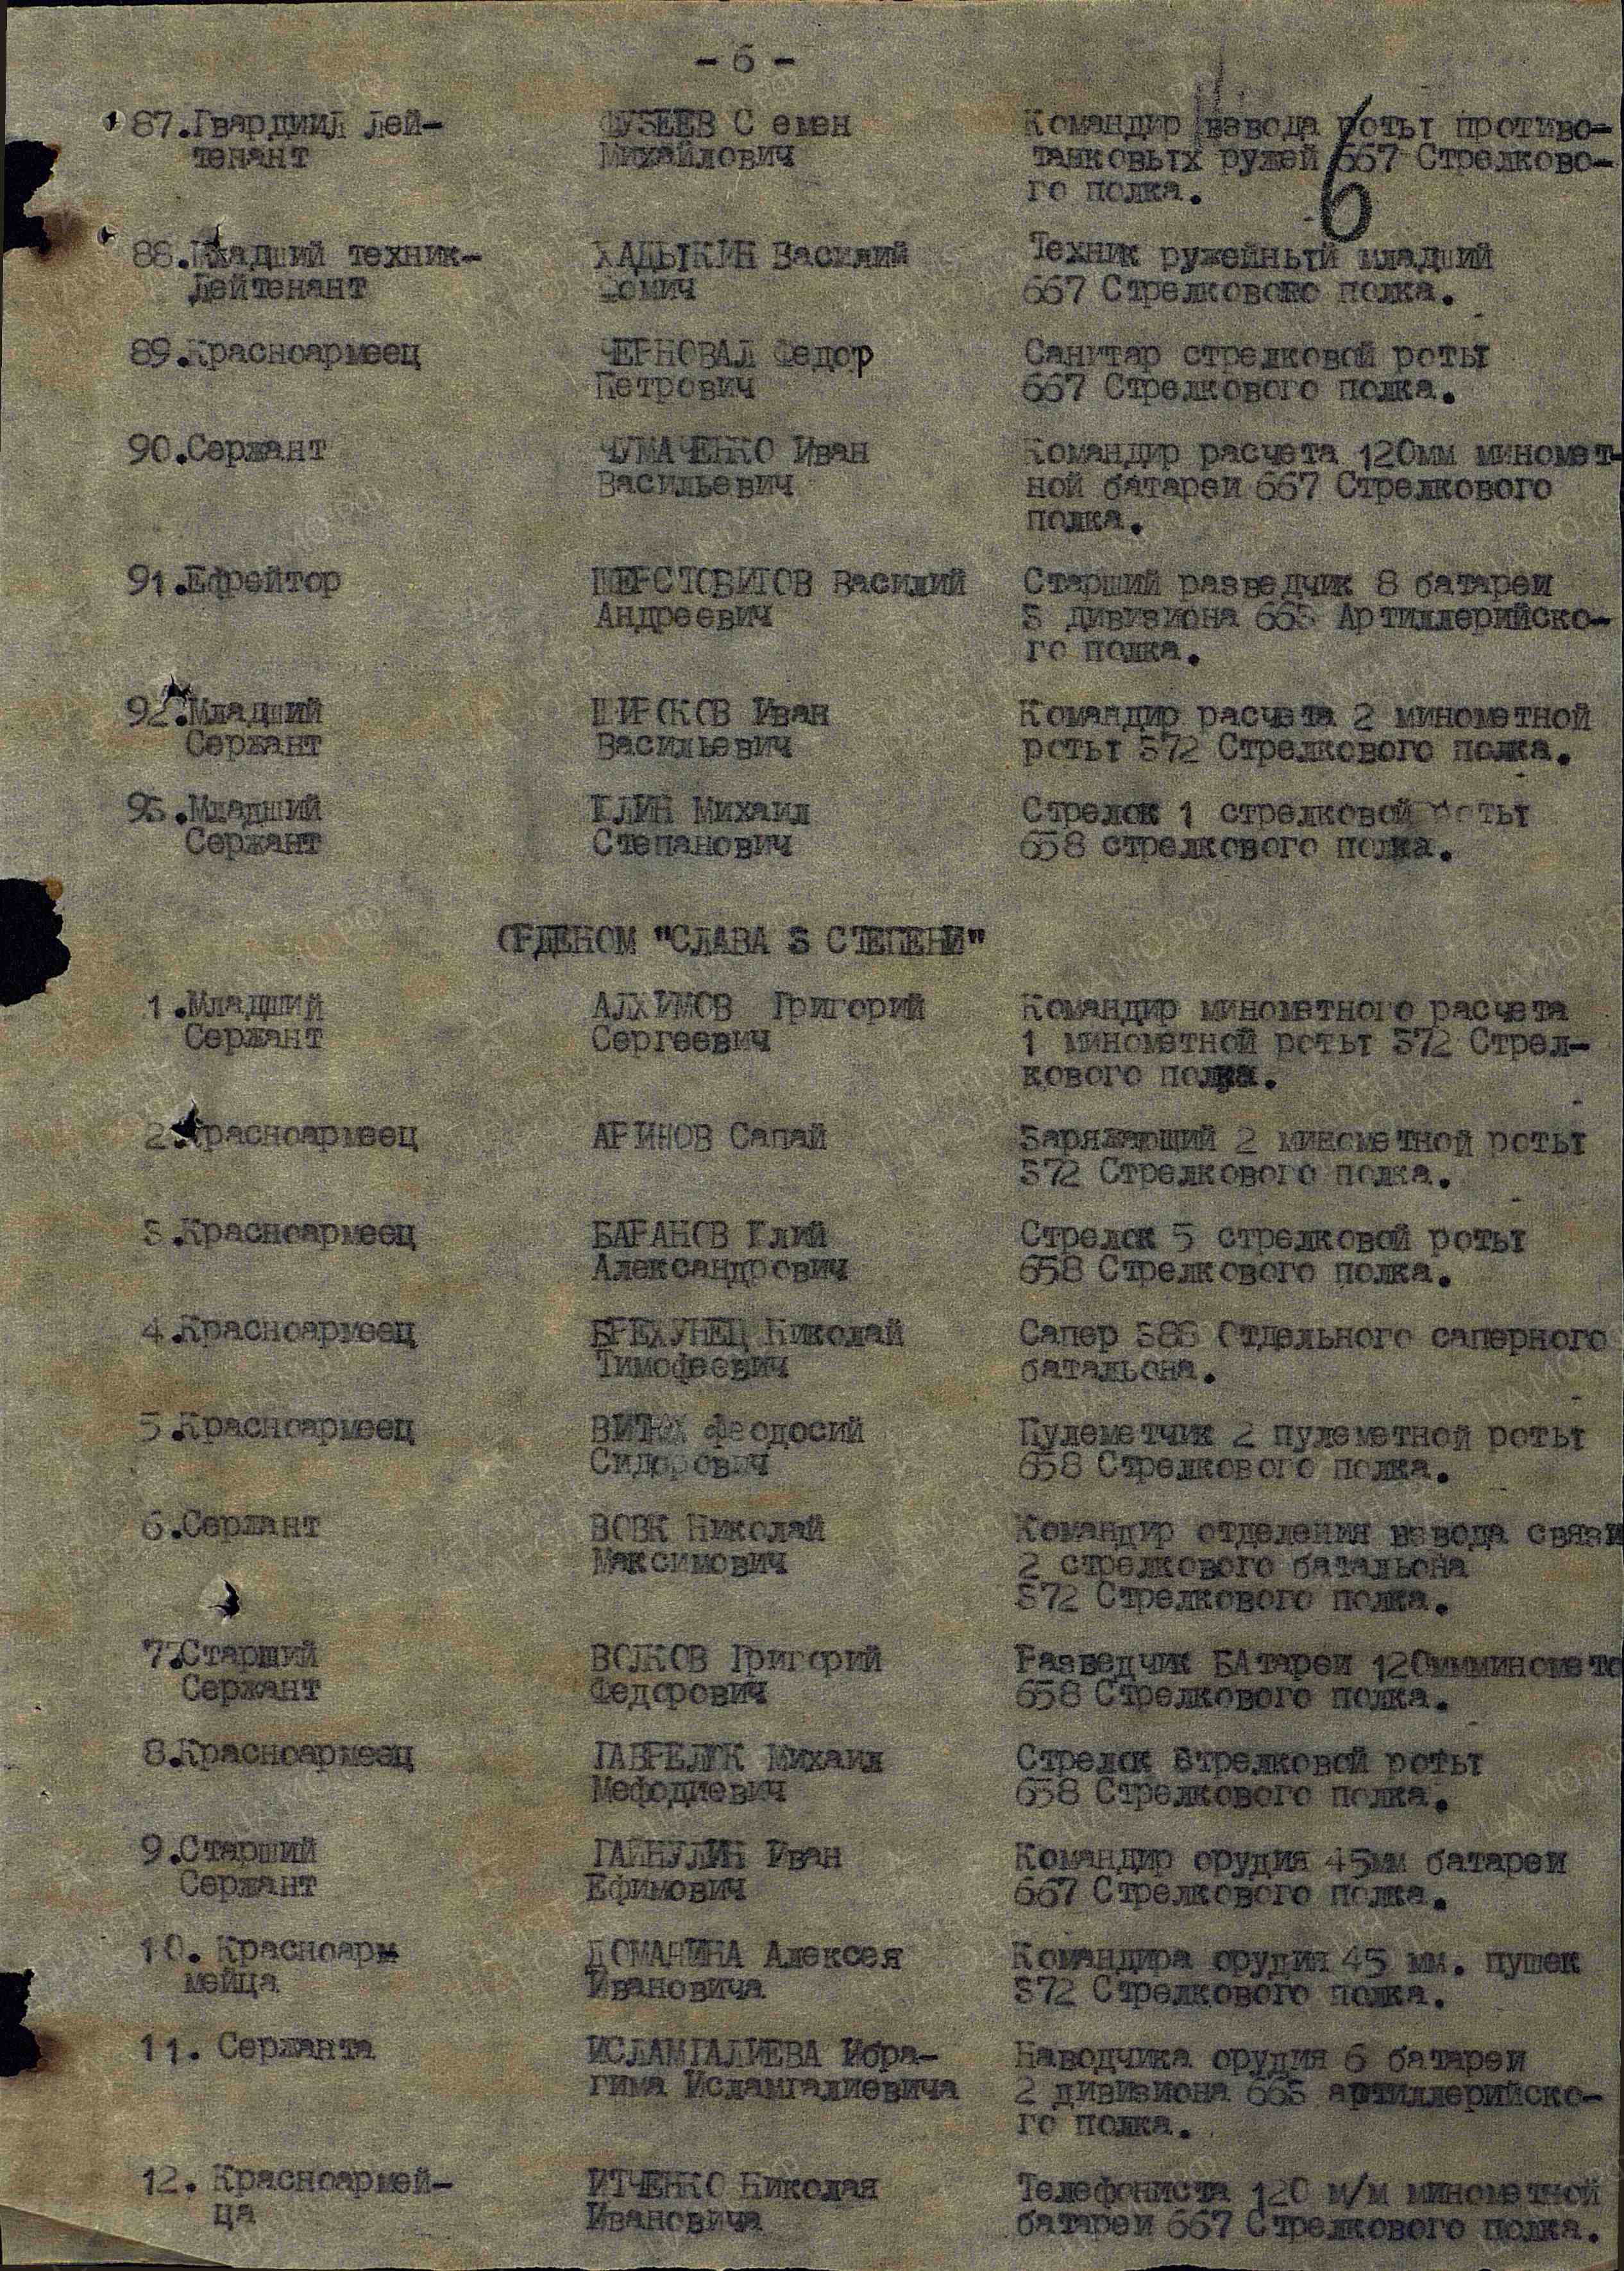 - 6 -
6
87.Гвардиил лей- ФУЗЕЕВ С емен Командир взвода роты противо-
тенант Михайлович танковых ружей 667 Стрелково-
го полка.
88.Младший техник- ХАДЫКИН Василий Техник ружейный младший
Лейтенант Фомич 667 Стрелкового полка.
89.Красноармеец ЧЕРНОВАЛ Федор Санитар стрелковой роты
Петрович 667 Стрелкового полка.
90.Сержант ЧУМАЧЕНКО Иван Командир расчета 120мм миномет-
Васильевич ной батареи 667 Стрелкового
полка.
91.Ефрейтор ШЕРСТОБИТОВ Василий Старший разведчик 8 батареи
Андреевич 3 дивизиона 663 Артиллерийско-
го полка.
92.Младший ШИРОКОВ Иван Командир расчета 2 минометной
Сержант Васильевич роты 372 Стрелкового полка.
93.Младший Михаил Стрелок 1 стрелковой роты
Сержант Степанович 658 стрелкового полка.
ОРДЕНОМ "СЛАВА 3 СТЕПЕНИ"
1.Младший АЛХИМОВ Григорий Командир минометного расчета
Сержант Сергеевич 1 минометной роты 372 Стрел-
кового полка.
2.Красноармеец АРИНОВ Сапай Заряжающий 2 минометной роты
372 Стрелкового полка.
3.Красноармеец БАРАНОВ Стрелок 5 стрелковой роты
Александрович 658 Стрелкового полка.
4.Красноармеец БРЕХУНЕЦ Николай Сапер Отдельного саперного
Тимофеевич батальона.
5.Красноармеец Феодосий Пулеметчик 2 пулеметной роты
Сидорович 658 Стрелкового полка.
6.Сержант ВОВК Николай Командир отделения взвода связи
Максимович 2 стрелкового батальона
372 Стрелкового полка.
7.Старший ВОЛКОВ Григорий Разведчик БАтареи 120ммминомето
Сержант Федорович 658 Стрелкового полка.
8.Красноармеец ГАВРЕЛЮК Михаил Стрелок Стрелковой роты
Мефодиевич 658 Стрелкового полка.
9.Старший ГАЙНУЛИН Иван Командир орудия 45мм батареи
Сержант Ефимович 667 Стрелкового полка.
10. Красноарм ДОМАНИНА Алексея Командира орудия 45 мм. пушек
мейца Ивановича 372 Стрелкового полка.
11. Сержанта ИСЛАМГАЛИЕВА Ибра- Наводчика орудия 6 батареи
гима Исламгалиевича 2 дивизиона 663 артиллерийско-
го полка.
12. Красноармей- ИТЧЕНКО Николая Телефониста 120 м/м минометной
ца Ивановича батареи 667 Стрелкового полка.